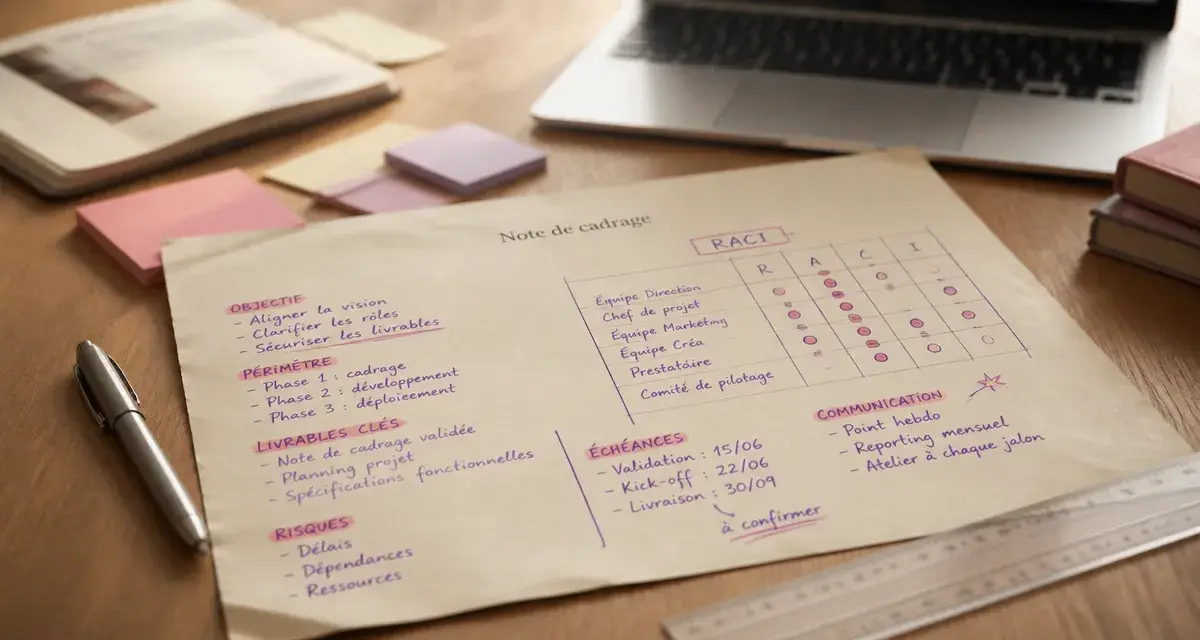 Note de cadrage
OBJECTIF
- Aligner la vision
- Clarifier les rôles
- Sécuriser les livrables
PÉRIMÈTRE
- Phase 1 : cadrage
- Phase 2 : développement
- Phase 3 : déploieement
LIVRABLES CLÉS
- Note de cadrage validée
- Planning projet
- Spécifications fonctionnelles
RISQUES
- Délais
- Dépendances
- Ressources
RACI
R A C I
Équipe Direction
Chef de projet
Équipe Marketing
Équipe Créa
Prestataire
Comité de pilotage
ÉCHÉANCES
- Validation : 15/06
- Kick-off : 22/06
- Livraison : 30/09
à confirmer
COMMUNICATION
- Point hebdo
- Reporting mensuel
- Atelier à chaque jalon